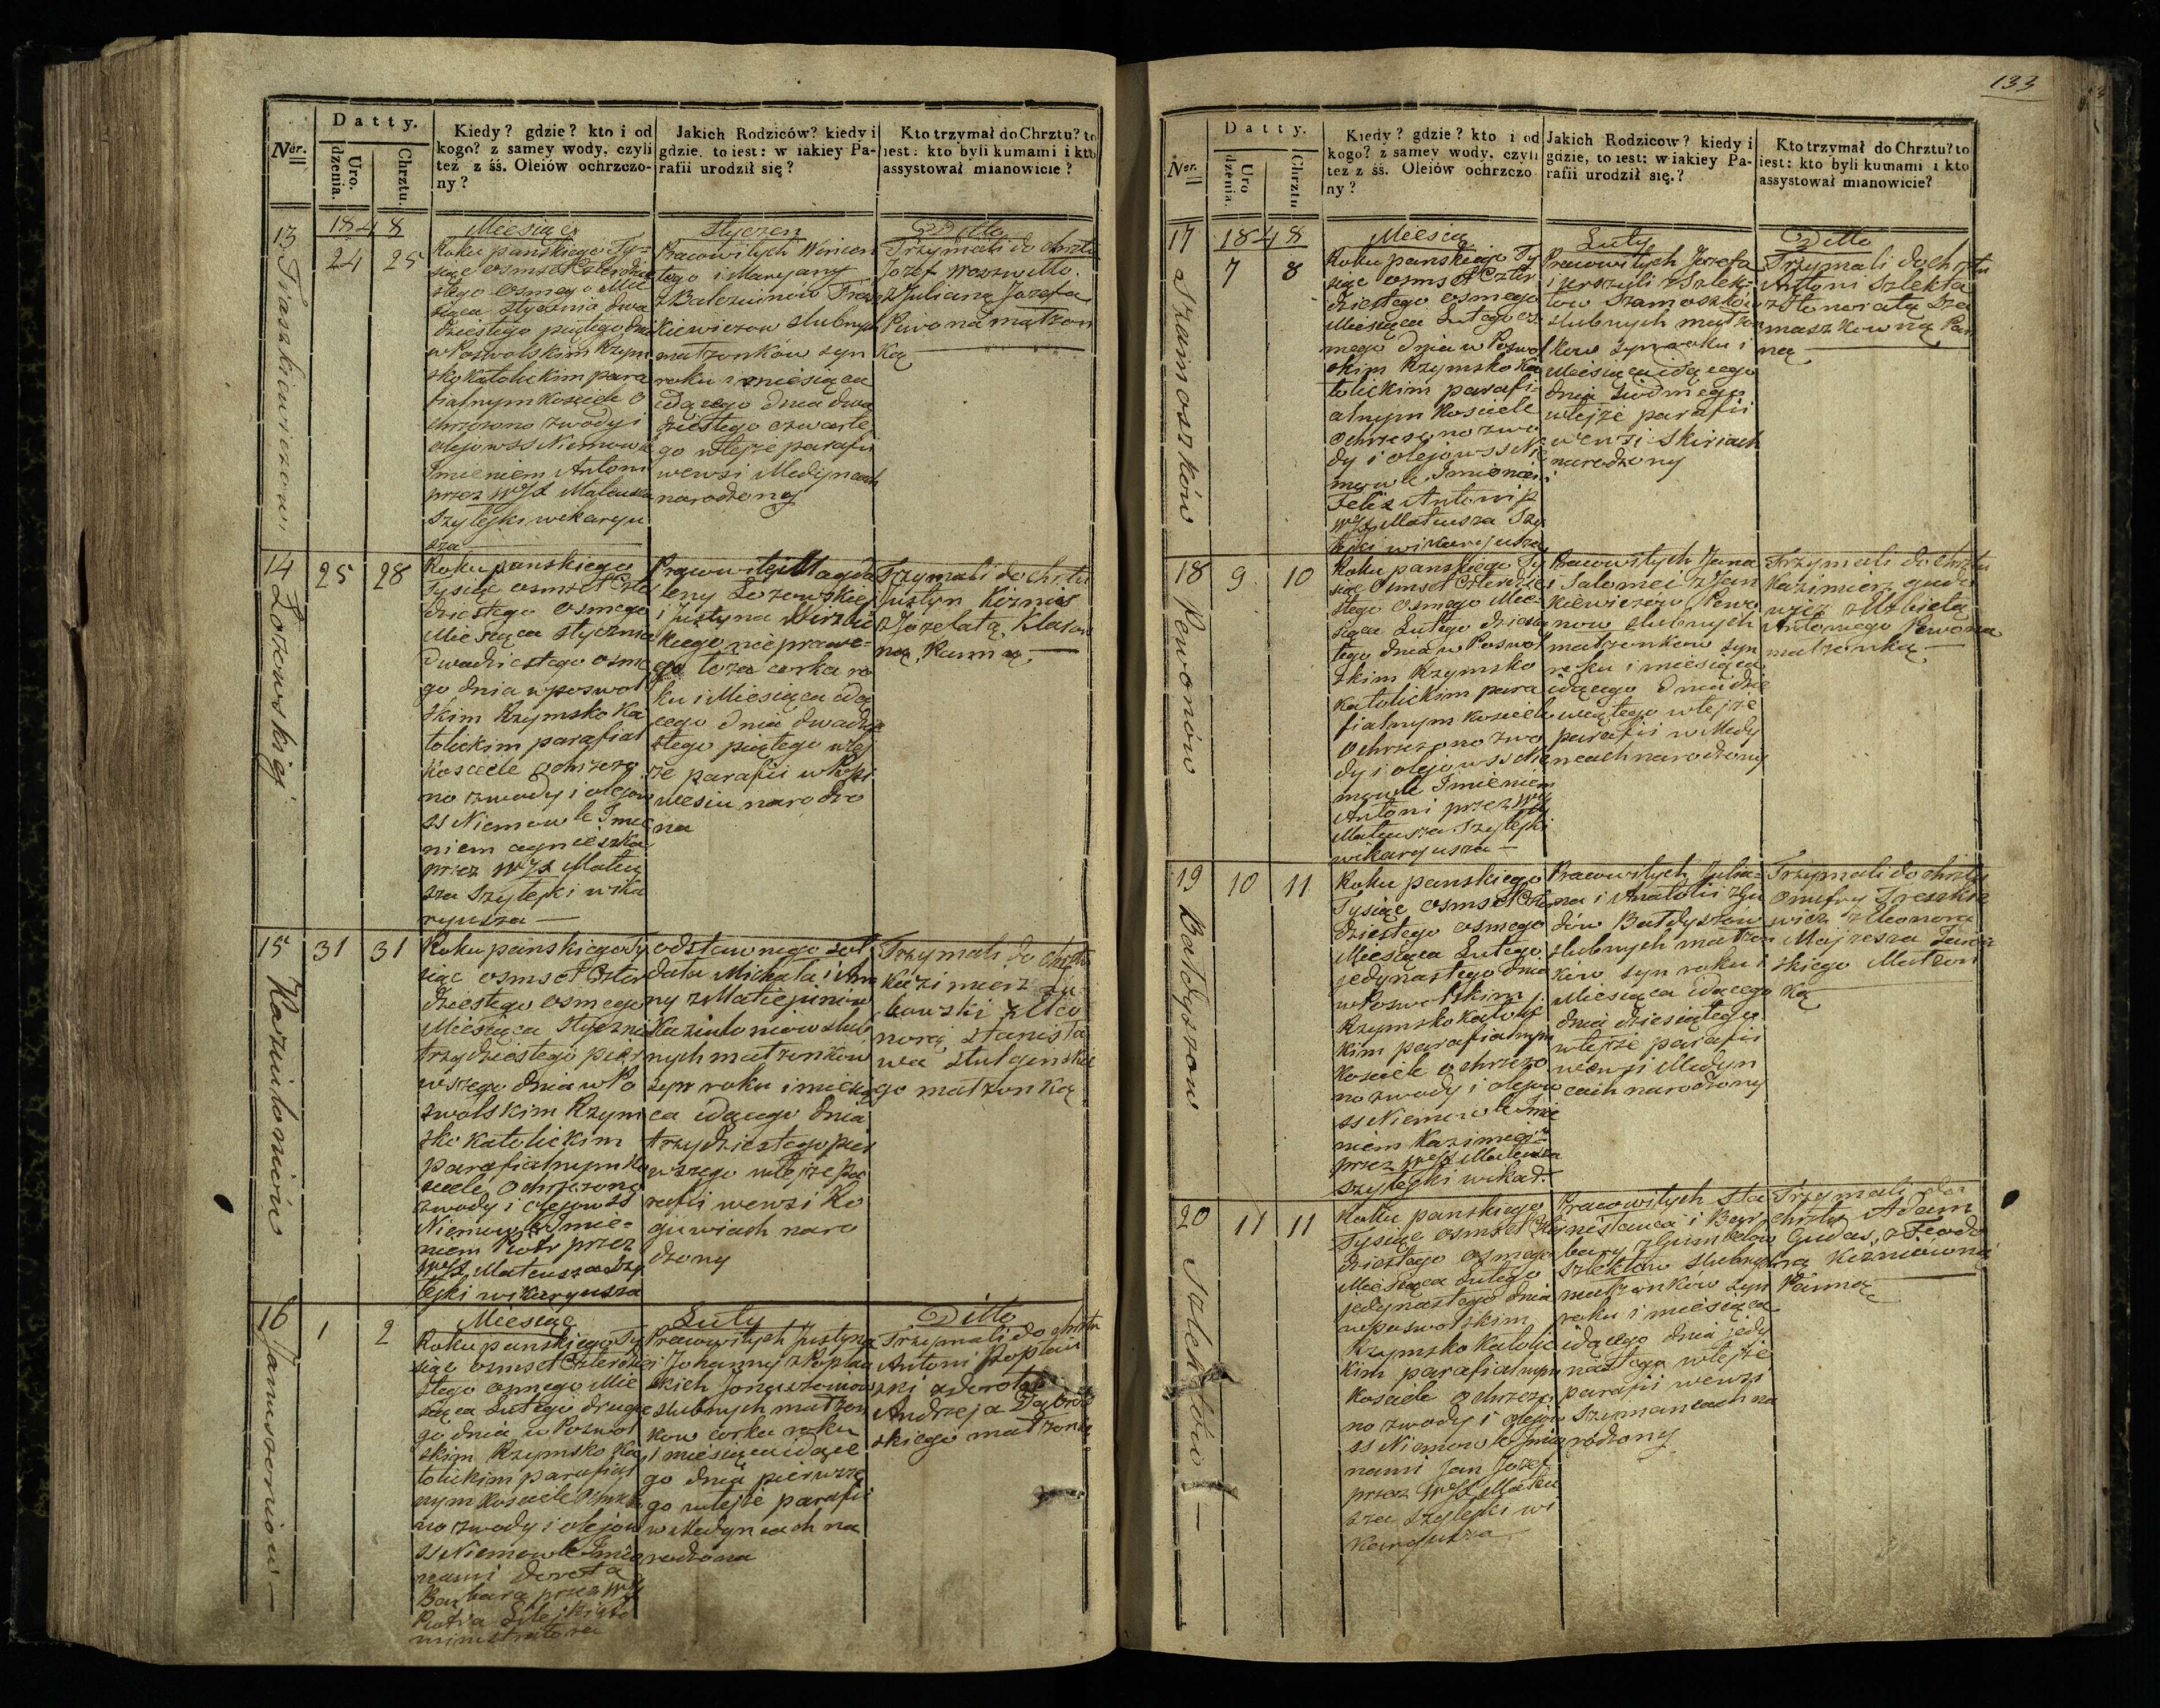 Ner.
Datty.
Uro.
dzenia.
Chrztu.
Kiedy? gdzie? kto i od
kogo? z samey wody, czyli
też z śś. Oleiów ochrzczo-
ny?
Jakich Rodziców? kiedy i
gdzie, to iest: w iakiey Pa-
rafii urodził się?
Kto trzymał do Chrztu? to
iest: kto byli kumami i kto
assystował mianowicie?
1848
Miesiąc
Styczen
Ditto
13
24
25
Roku panskiego Ty-
siąc osmset Czterdzie
stego osmego Mie
siąca Stycznia dwa
dziestego piątego dnia
w Poswolskim Rzym
sko Katolickim para
fialnym Kosciele O
chrzczono zwody i
olejow SS Niemowle
Imieniem Antoni
przez WJX Mateusza
Szylejki wikaryu
sza
Pracowitych Wincen
tego i Maryany
z Balcziunów Trasz
kiewiczow slubnych
małzonków syn
roku i miesiąca
idącego dnia dwa
dziestego czwarte
go wtejże parafii
wewsi Medyncach
narodzony
Trzymali do chrztu
Jozef
z Julianą Jozefa
Piwo na małzon
ką
14
Łozowskiej
25
28
Roku panskiego
Tysiąc osmset Czter
dziestego osmego
Miesiąca Stycznia
Dwadziestego osme
go dnia wposwol
skim Rzymsko Ka
tolickim parafial
Kosciele ochrzczo
no zwody i olejow
SS Niemowle Imie
niem Agnieszka
przez WJX Mateu
sza Szylejki wika
ryusza
Pracowitej Magda
leny Łozowskiej
i Justyna
kiego nieprawe-
go łoża corka ro
ku i Miesiąca idą
cego dnia dwadzie
stego piątego wtej
że parafii w
wesiu narodzo
na
Trzymali do chrztu
Justyn Kiznios
z Jozefatą
ną Panną
15
Kaziuloniów
31
31
Roku panskiego Ty
siąc osmset Czter
dziestego osmego
Miesiąca Styczni
trzydziestego pier
wszego dnia w Po
swolskim Rzym
sko Katolickim
parafialnym Ko
sciele Ochrzczono
zwody i olejow SS
Niemowle Imie-
niem Piotr przez
WJX Mateusza Szy
lejki wikaryusza
odstawnego soł
data Michała i Ann
ny z Matiejuniów
Kaziuloniow slub
nych małzonków
syn roku i miesią
ca idącego dnia
trzydziestego pier
wszego wtejże pa
rafii wewsi Ko
giuwiach naro
dzony
Trzymali do chrztu
Kazimierz
bowski z Eleo
norą Stanisła
wa
go małzonką
Miesiąc
Luty
Ditto
16
1
2
Roku panskiego Ty
siąc osmset Czterdzie
stego osmego Mie
siąca Lutego drugie
go dnia w Poswol
skim Rzymsko Ka
tolickim parafial
nym Kosciele Ochrzczo
no zwody i olejow
SS Niemowle Imio
nami Dorota
Barbara przez WJX
Piotra
ministratora
Pracowitych Justyna
i Johanny z Popław
skich
slubnych małzon
kow corka roku
i miesiąca idące
go dnia pierwsze
go wtejże parafii
w Medyncach na
rodzona
Trzymali do chrztu
Antoni Popław
ski z Dorotą
Andrzeja
skiego małzonką
133
Ner.
Datty.
Uro
dzenia.
Chrztu
Kiedy? gdzie? kto i od
kogo? z samey wody, czyli
też z śś. Oleiów ochrzczo
ny?
Jakich Rodzicow? kiedy i
gdzie, to iest: w iakiey Pa-
rafii urodził się.?
Kto trzymał do Chrztu? to
iest: kto byli kumami i kto
assystował mianowicie?
1848
Miesiąc
Luty
Ditto
17
Szamoszków
7
8
Roku panskiego Ty
siąc osmset Czter
dziestego osmego
Miesiąca Lutego os
mego dnia w Poswol
skim Rzymsko Ka
tolickim parafi-
alnym Kosciele
ochrzczono zwo
dy i olejow SS Nie
mowle Imionami
Felix Antoni p
WJX Mateusza Szy
lejki wikaryusza
Pracowitych Jozefa
i Urszuli z Szlek-
tow Szamoszków
slubnych małzon
kow syn roku i
miesiąca idącego
dnia siodmego
wtejże parafii
wewsi Skiriach
narodzony
Trzymali do chrztu
Antoni Szlekta
z Honoratą Sza
maszkowną Pan
ną
18
Pewonów
9
10
Roku panskiego Ty
siąc Osmset Czterdzie
stego osmego Mie-
siąca Lutego dziesią
tego dnia w Poswol
skim Rzymsko
Katolickim para
fialnym Kosciele
Ochrzczono zwo
dy i olejow SS Nie
mowle Imieniem
Antoni przez WJX
Mateusza Szylejki
wikaryusza
Pracowitych Jana
i Salomei z Jan
kiewiczów Pewo
now slubnych
małzonkow syn
roku i miesiąca
idącego dnia dzie
wiątego wtejże
parafii w Medy
ncach narodzony
Trzymali do chrztu
Kazimierz
z Elżbietą
Antoniego Pewona
małzonką
19
Bałdyszow
10
11
Roku panskiego
Tysiąc osmset Czter
dziestego osmego
Miesiąca Lutego
jedynastego dnia
w Poswolskim
Rzymsko Katolic
kim parafialnym
Kosciele ochrzczo
no zwody i olejow
SS Niemowle Imie
niem Kazimierz
przez WJX Mateusza
Szylejki wikar.
Pracowitych Julia-
na i Anatolii z Gu
dów Bałdyszów
slubnych małzon
ków syn roku i
Miesiąca idącego
dnia dziesiątego
wtejże parafii
wewsi Medyn
cach narodzony
Trzymali do chrztu
Onufry
wicz z Eleonorą
Majzesza
skiego Małzon
ką
20
Szlektów
11
11
Roku panskiego
Tysiąc osmset Czter
dziestego osmego
Miesiąca Lutego
jedynastego dnia
wposwolskim
Rzymsko Katolic
kim parafialnym
Kosciele ochrzczo
no zwody i olejow
SS Niemowle Imio
nami Jan Jozef
przez WJX Mateu
sza Szylejki wi
karyusza
Pracowitych Sta
nisława i Bar
bary z
Szlektow slubnych
małzonków syn
roku i miesiąca
idącego dnia jedy
nastego wtejże
parafii wewsi
Szymancach na
rodzony
Trzymali do
chrztu Adam
Gudas z Teodo
rą Kizniówną
Panną